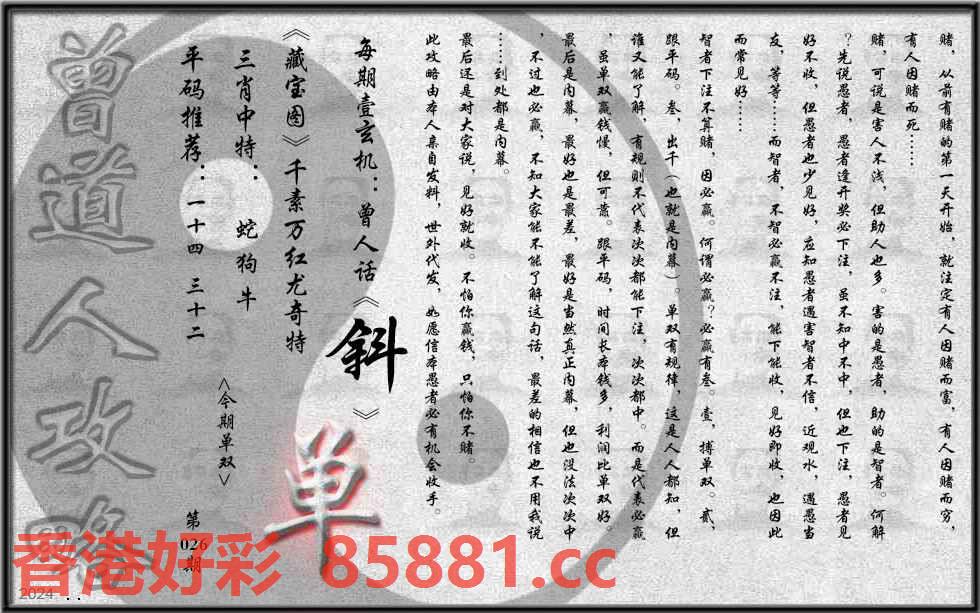 赌，从前有赌的第一天开始，就注定有人因赌而富，有人因赌而穷，
有人因赌而死……
赌，可说是害人不浅，但助人也多。害的是愚者，助的是智者。何解
？先说愚者，愚者逢开奖必下注，虽不知中不中，但也下注，愚者见
好不收，但愚者也少见好，应知愚者遇害智者不信，近观水，遇愚当
友，等等……而智者，不智必赢不注，能下能收，见好即收，也因此
而常见好……
智者下注不算赌，因必赢。何谓必赢？必赢有叁。壹，搏单双。贰，
跟平码。叁，出千（也就是内幕）。单双有规律，这是人人都知，但
谁又能了解，有规则不代表次次都能下注，次次都中。而是代表必赢
，虽单双赢钱慢，但可靠。跟平码，时间长本钱多，利润比单双好。
最后是内幕，最好也是最差，最好是当然真正内幕，但也没法次次中
，不过也必赢，不知大家能不能了解这句话，最差的相信也不用我说
……到处都是内幕。
最后还是对大家说，见好就收。不怕你赢钱，只怕你不赌。
此攻略由本人亲自发料，世外代发，如愿信本愚者必有机会收手。
每期壹玄机：曾人话《斜》
《藏宝图》千素万红尤奇特
三肖中特：蛇狗牛
平码推荐：一十四 三十二
<今期单双>
单
第026期
曾道人攻略
香港好彩 85881.cc
2024